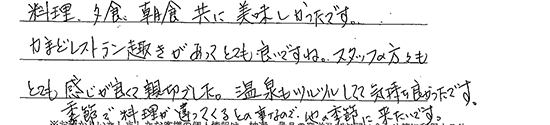 料理、夕食、朝食 共に 美味しかったです。
かまどレストラン趣きがあってとても良いですね。スタッフの方々も
とても 感じが良くて 親切でした。温泉もツルツルして 気持ち良かったです。
季節で 料理が違ってくるとの事なので、他の季節に 来たいです。